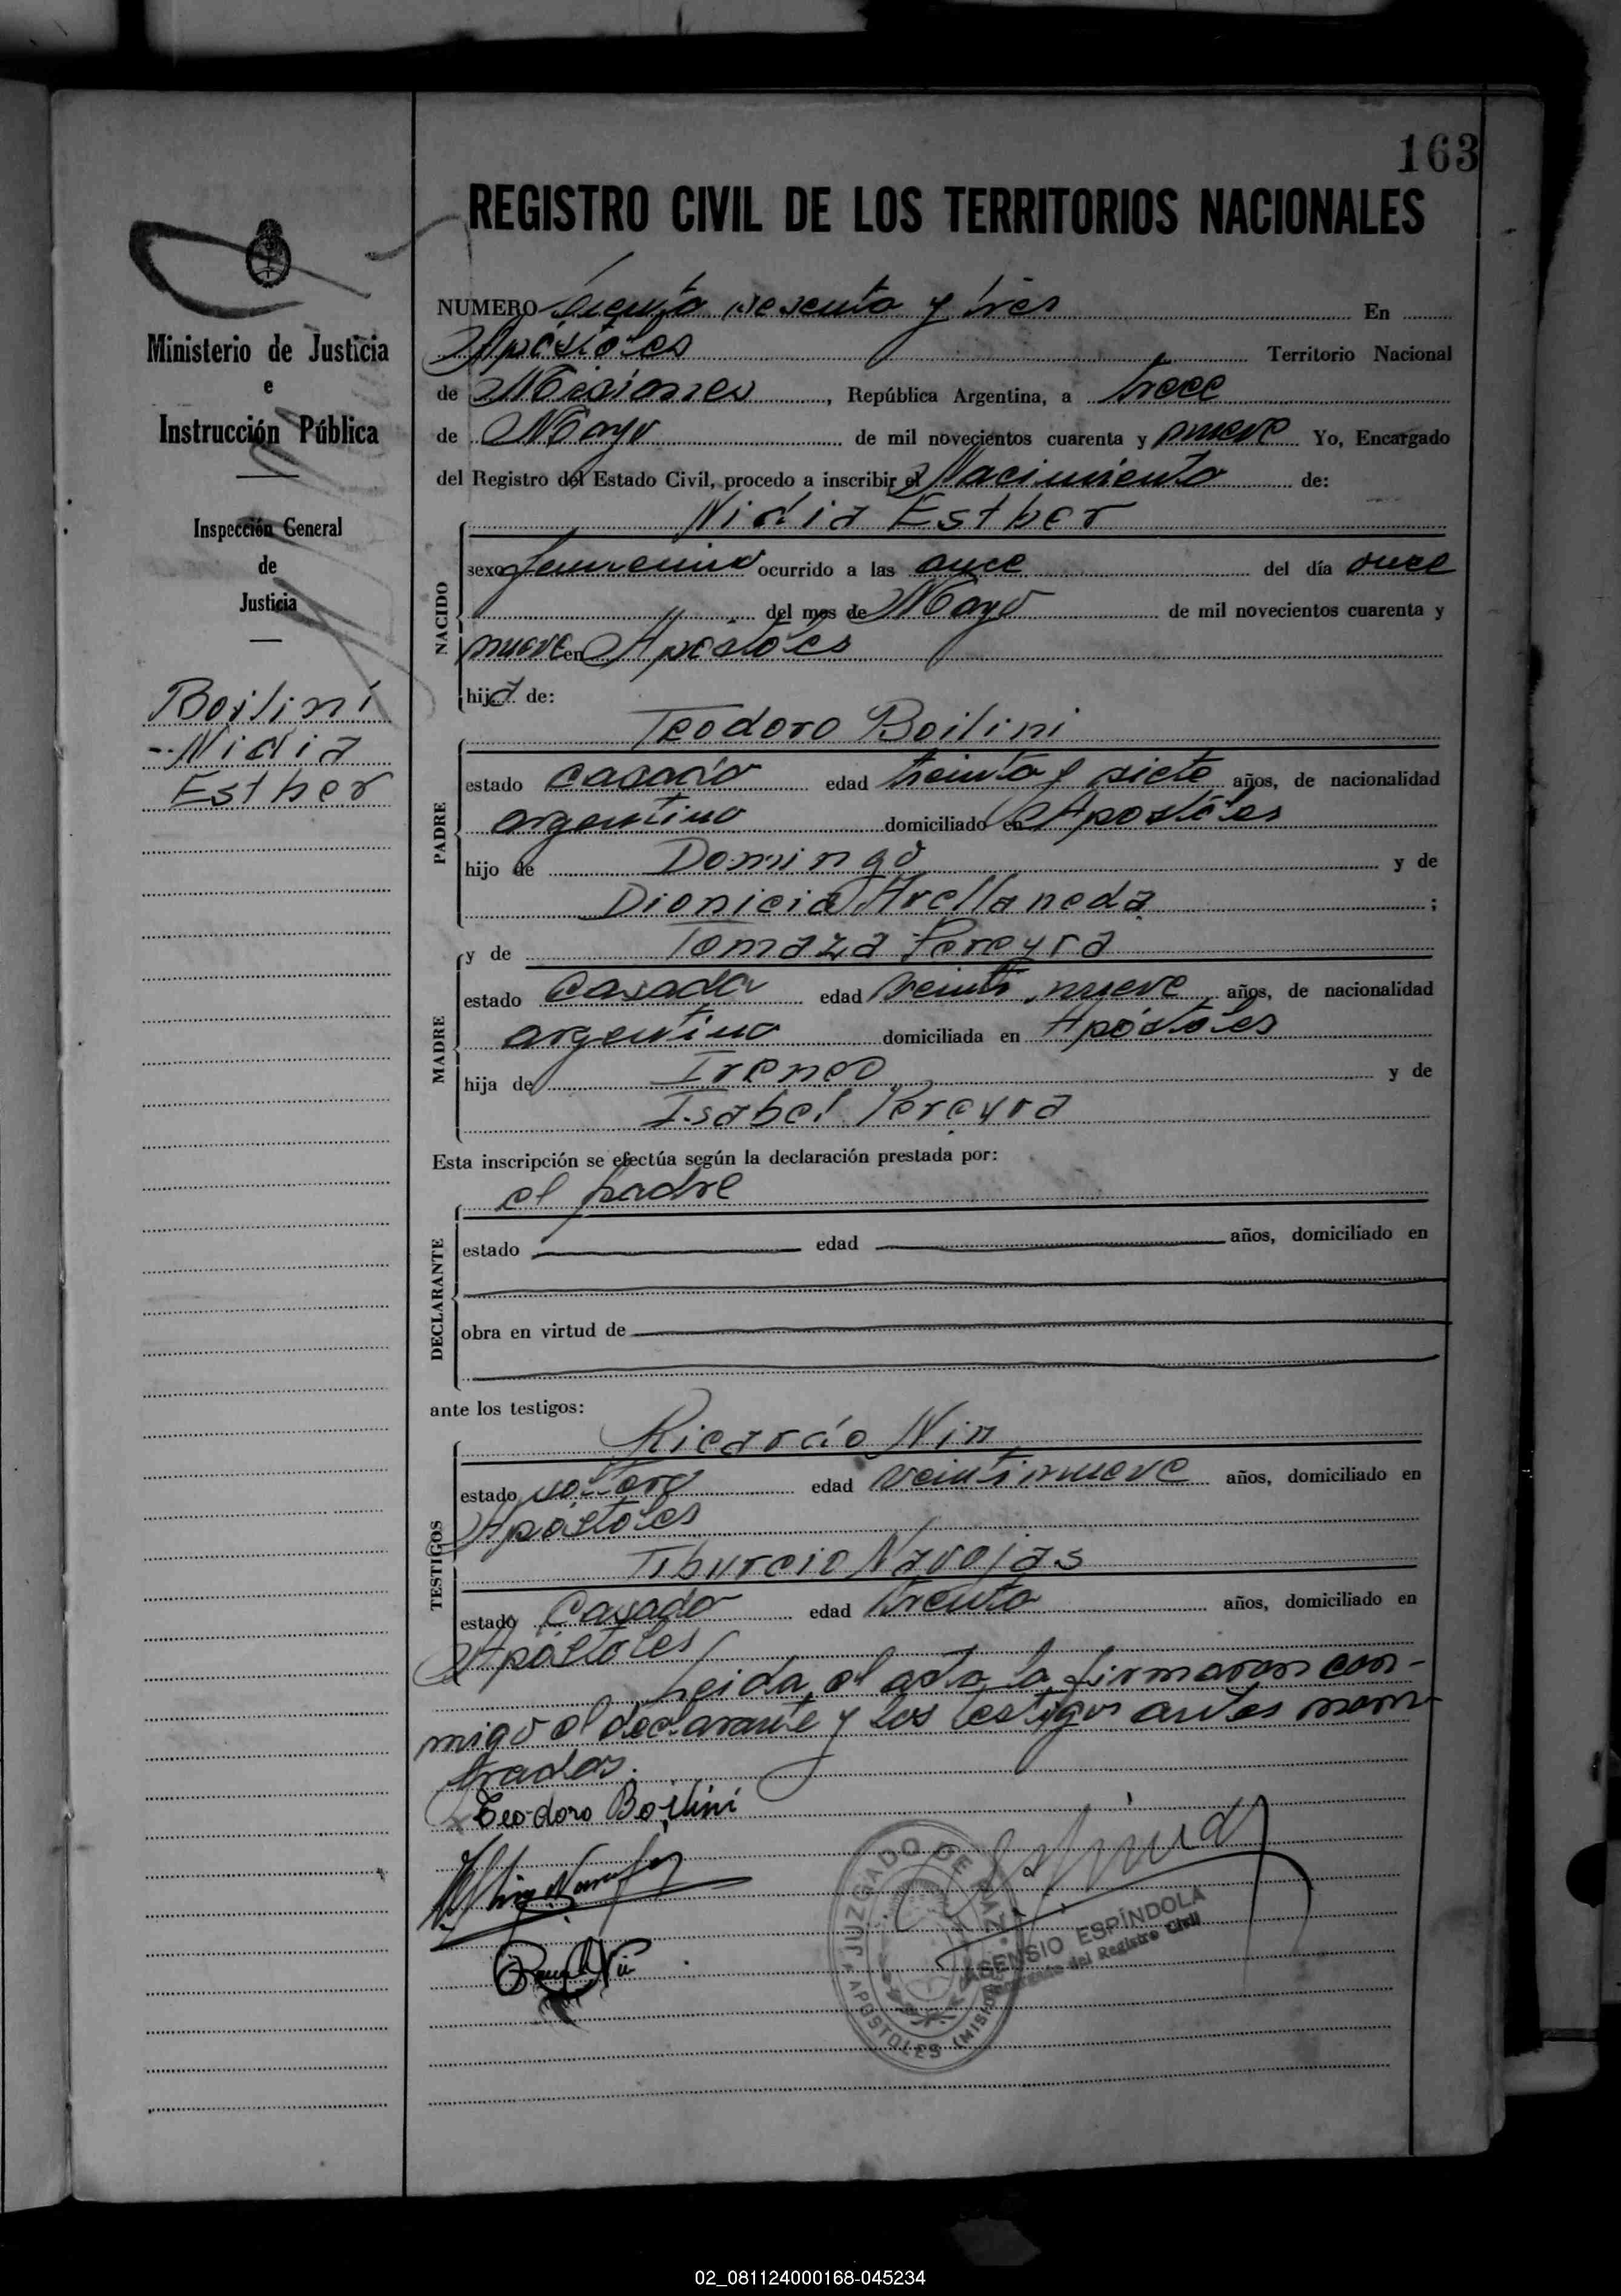 163
REGISTRO CIVIL DE LOS TERRITORIOS NACIONALES
Ministerio de Justicia
e
Instrucción Pública
Inspección General
de
Justicia
Boilini
Nidia
Esther
NUMERO ciento sesenta y tres En
Apóstoles Territorio Nacional
de Misiones, República Argentina, a trece
de Mayo de mil novecientos cuarenta y nueve Yo, Encargado
del Registro del Estado Civil, procedo a inscribir el Nacimiento de:
Nidia Esther
NACIDO
sexo femenino ocurrido a las once del día once
del mes de Mayo de mil novecientos cuarenta y
nueve en Apostóles
hija de:
Teodoro Boilini
PADRE
estado casado edad treinta y siete años, de nacionalidad
argentino domiciliado en Apostóles
hijo de Domingo y de
Dionicia Avellaneda;
y de Tomaza Pereyra
MADRE
estado Casada edad veinti nueve años, de nacionalidad
argentina domiciliada en Apóstoles
hija de Ireneo y de
Isabel Pereyra
Esta inscripción se efectúa según la declaración prestada por:
el padre
DECLARANTE
estado edad años, domiciliado en
obra en virtud de
ante los testigos:
Ricardo Nin
TESTIGOS
estado soltero edad veintinueve años, domiciliado en
Apóstoles
Tiburcio Navojas
estado Casado edad treinta años, domiciliado en
Apóstoles
Leida el acta la firmaron con-
migo el declarante y los testigos antes nom-
brados.
Teodoro Boilini
JUZGADO DE PAZ
APOSTOLES (MISIONES)
ASENSIO ESPÍNDOLA
Encargado del Registro Civil
02_081124000168-045234